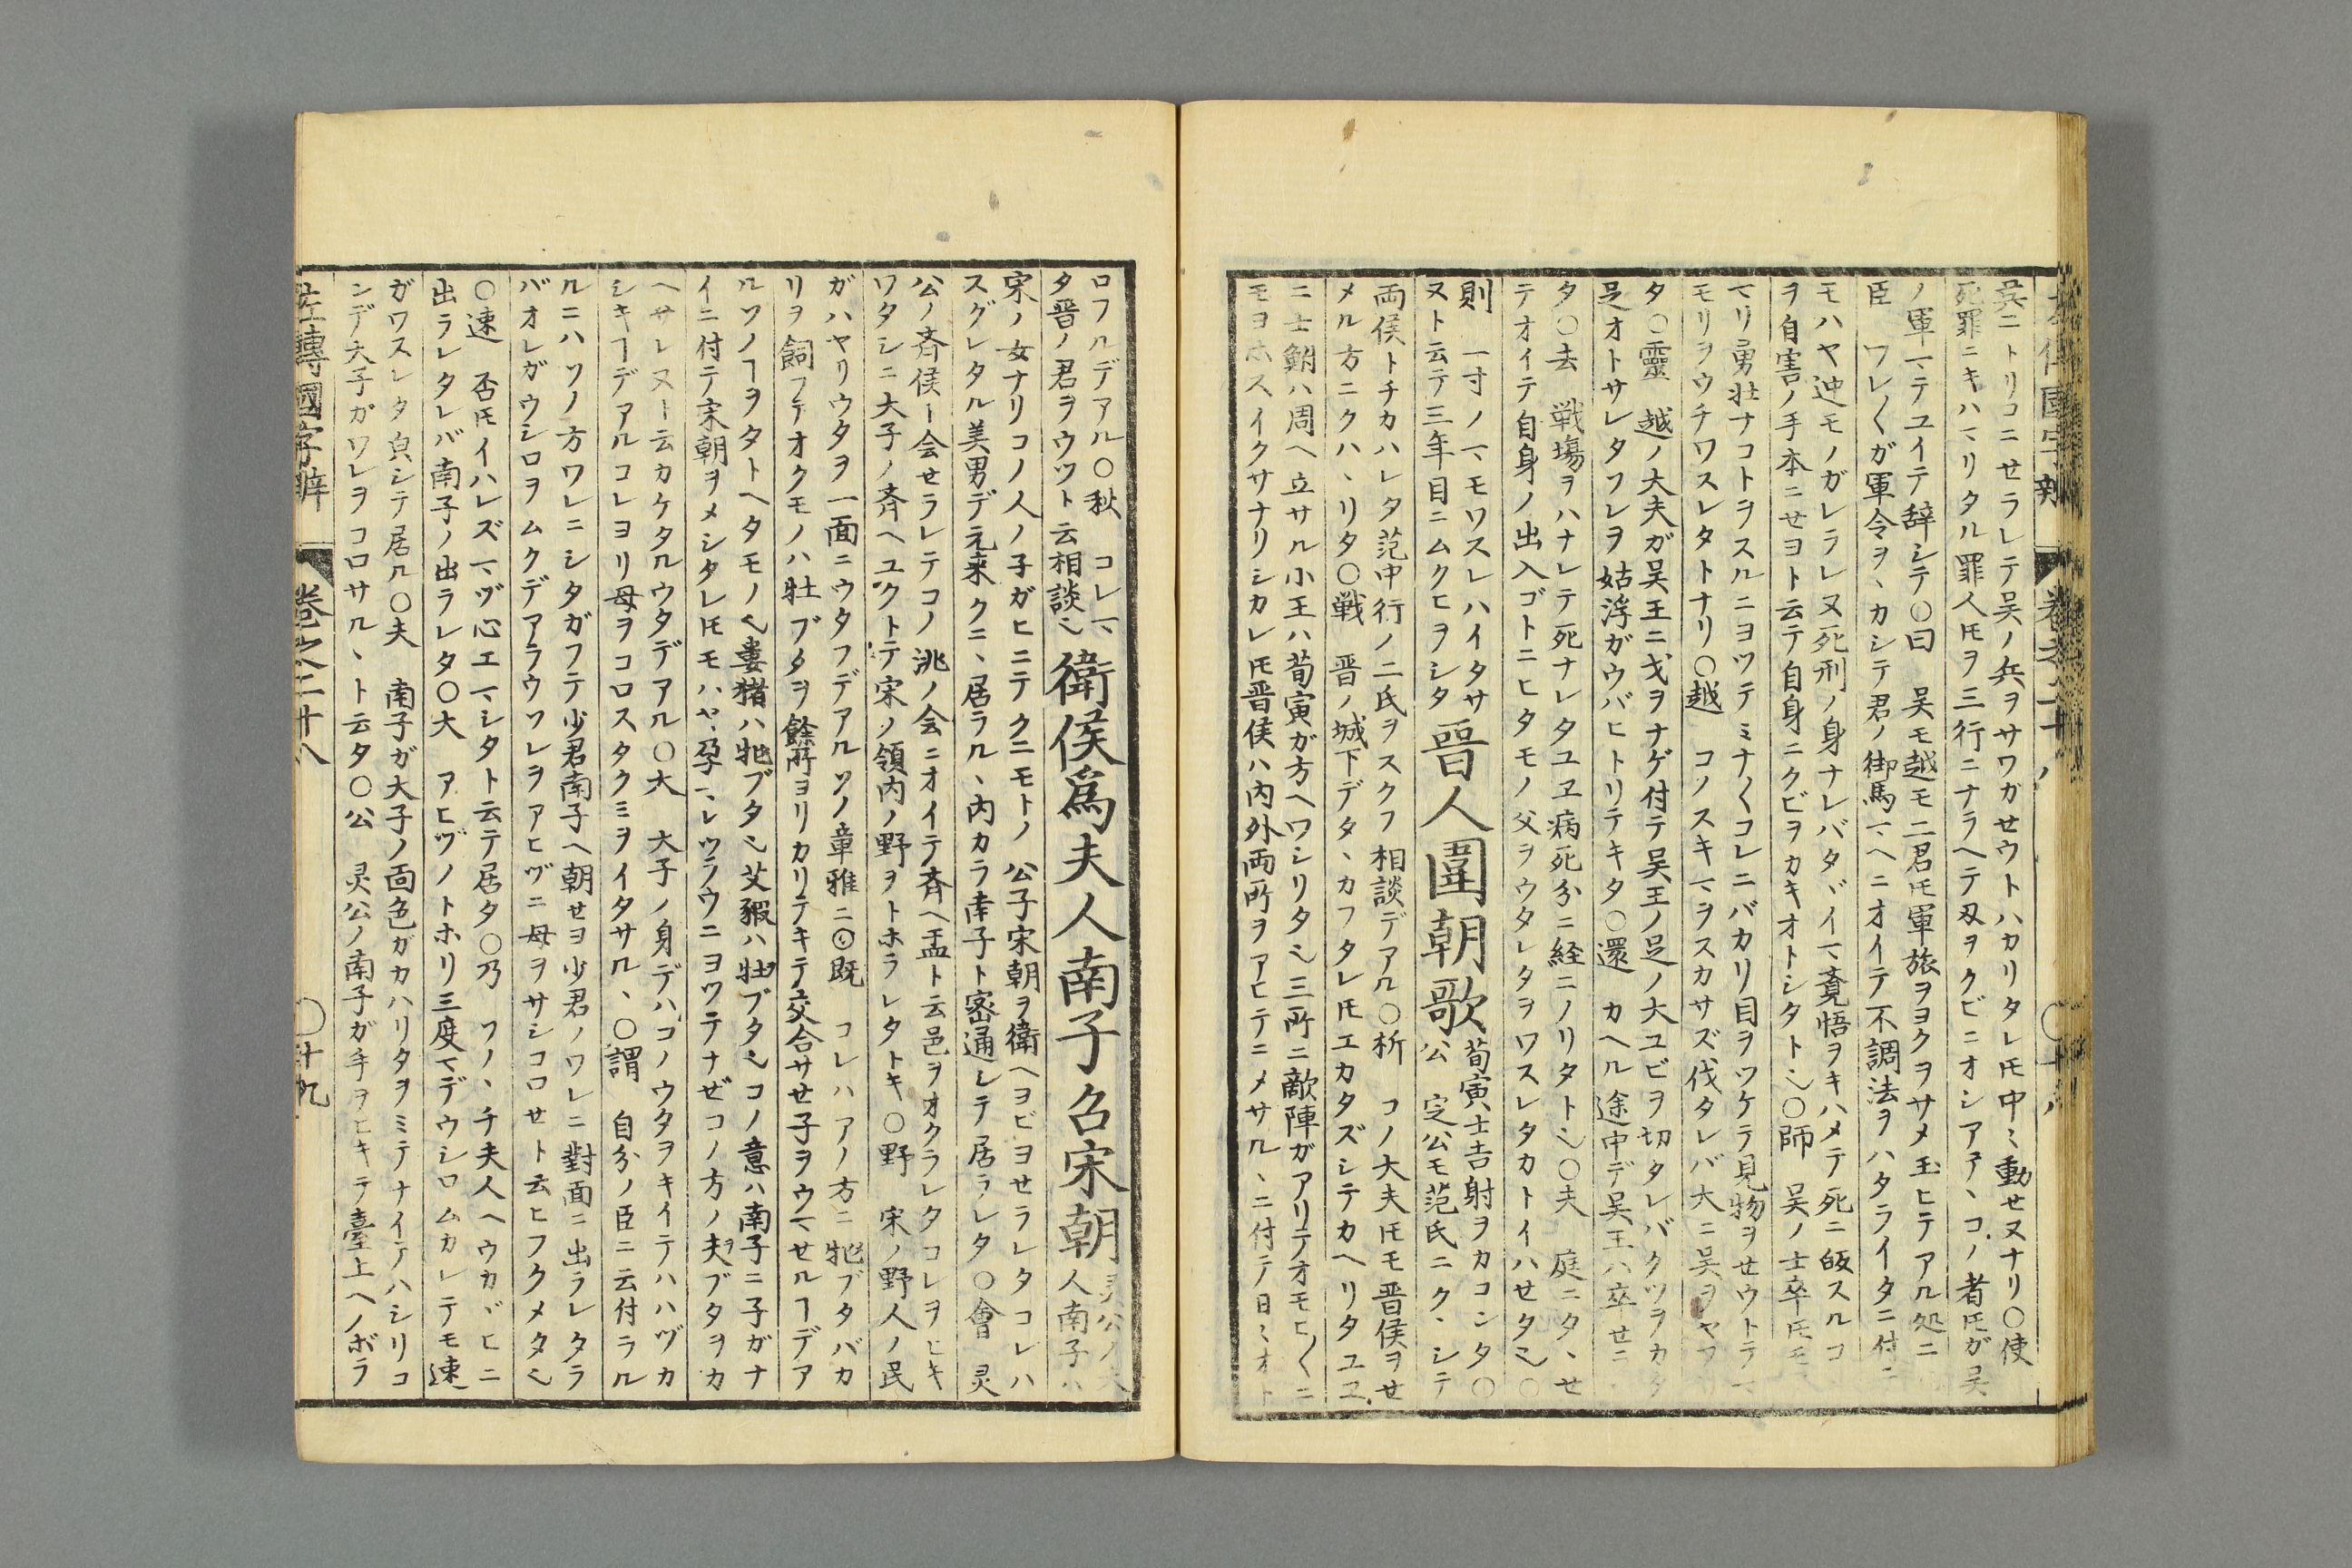 呉ニトリコニせラレテ吴ノ兵ヲサワガせウトハカリタレ𪜈中〻動せヌナリ○使
死罪ニキハマリタル罪人𪜈ヲ三行ニナラヘテ刄ヲクビニオシアテ、コノ者𪜈ガ吴
ノ軍マテユイテ辞シテ○曰　吴モ越モ二君𪜈軍旅ヲヨクヲサメ玉ヒテアル処ニ
臣　ワレ〱ガ軍令ヲ、カシテ君ノ御馬マヘニオイテ不調法ヲハタライタニ付テ
モハヤ迚モノガレラレヌ死刑ノ身ナレバタヾイマ覚悟ヲキハメテ死ニ皈スルコ
ヲ自害ノ手本ニせヨト云テ自身ニクビヲカキオトシタト也○師　吴ノ士卒𪜈モ
マリ勇壮ナコトヲスルニヨツテミナ〱コレニバカリ目ヲツケテ見物ヲせウトテ
モリヲウチワスレタトナリ○越　コノスキマヲスカサズ伐タレバ大ニ吴ヲヤフ
タ○靈　越ノ大夫ガ吴王ニ戈ヲナゲ付テ吴王ノ足ノ大ユビヲ切タレバクツヲカタ
足オトサレタフレヲ姑浮ガウバヒトリテキタ○還　カヘル途中デ吴王ハ卒せニ
タ○去　戦場ヲハナレテ死ナレタユヱ病死分ニ経ニノリタト也○夫　庭ニタ、せ
テオイテ自身ノ出入ゴトニヒタモノ父ヲウタレタヲワスレタカトイハせタ也○
則　一寸ノマモワスレハイタサ
ヌト云テ三年目ニムクヒヲシタ
晋人圍朝歌
荀寅士吉射ヲカコンタ○
公　定公モ范氏ニク、シテ
両侯トチカハレタ范中行ノ二氏ヲスクフ相談デアル○析　コノ大夫𪜈モ晋侯ヲせ
メル方ニクハ、リタ○戦　晋ノ城下デタ、カフタレ𪜈エカタズシテカヘリタユヱ
ニ士鮒ハ周ヘ立サル小王ハ荀寅ガ方ヘワシリタ也三所ニ敵陣ガアリテオモヒ〱ニ
モヨホスイクサナリシカレ𪜈晋侯ハ内外両所ヲアヒテニメサル、ニ付テ日〻オト
ロフルデアル○秋　コレマ
タ晋ノ君ヲウツト云相談也
衛侯爲夫人南子召宋朝
灵公ノ夫
人南子ハ
宋ノ女ナリコノ人ノ子ガヒニテクニモトノ公子宋朝ヲ衛ヘヨビヨせラレタコレハ
スグレタル美男デ元来クニ、居ラル、内カラ南子ト密通レテ居ラレタ○會　灵
公ノ斉侯ト会せラレテコノ洮ノ会ニオイテ斉ヘ盂ト云邑ヲオクラレタコレヲヒキ
ワタシニ大子ノ斉ヘユクトテ宋ノ領内ノ野ヲトホラレタトキ○野　宋ノ野人ノ民
ガハヤリウタヲ一面ニウタフデアルソノ章雅ニ◎既　コレハアノ方ニ牝ブタバカ
リヲ飼フテオクモノハ牡ブタヲ餘所ヨリカリテキテ交合サせ子ヲウマせルヿデア
ルソノヿヲタトヘタモノ也婁猪ハ牝ブタ也艾豭ハ牡ブタ也コノ意ハ南子ニ子ガナ
イニ付テ宋朝ヲメシタレ𪜈モハヤ、孕マレツラウニヨツテナゼコノ方ノ夫ブタヲカ
ヘサレヌト云カケタルウタデアル○大　大子ノ身デハコノウタヲキイテハハヅカ
シキヿデアルコレヨリ母ヲコロスタクミヲイタサル、○謂　自分ノ臣ニ云付ラル
ルニハソノ方ワレニシタガフテ少君南子ヘ朝せヨ少君ノワレニ對面ニ出ラレタラ
バオレガウシロヲムクデアラウソレヲアヒヅニ母ヲサシコロせト云ヒフクメタ也
○速　否𪜈イハレズマヅ心エマシタト云テ居タ○乃　ソノ、チ夫人ヘウカヾヒニ
出ラレタレバ南子ノ出ラレタ○大　アヒヅノトホリ三度マデウシロムカレテモ速
ガワスレタ㒵シテ居ル○夫　南子ガ大子ノ面色ガカハリタヲミテナイテハシリコ
ンデ大子ガワレヲコロサル、ト云タ○公　灵公ノ南子ガ手ヲヒキテ臺上ヘノボラ
左轉國字辨　卷之二十八　○十九